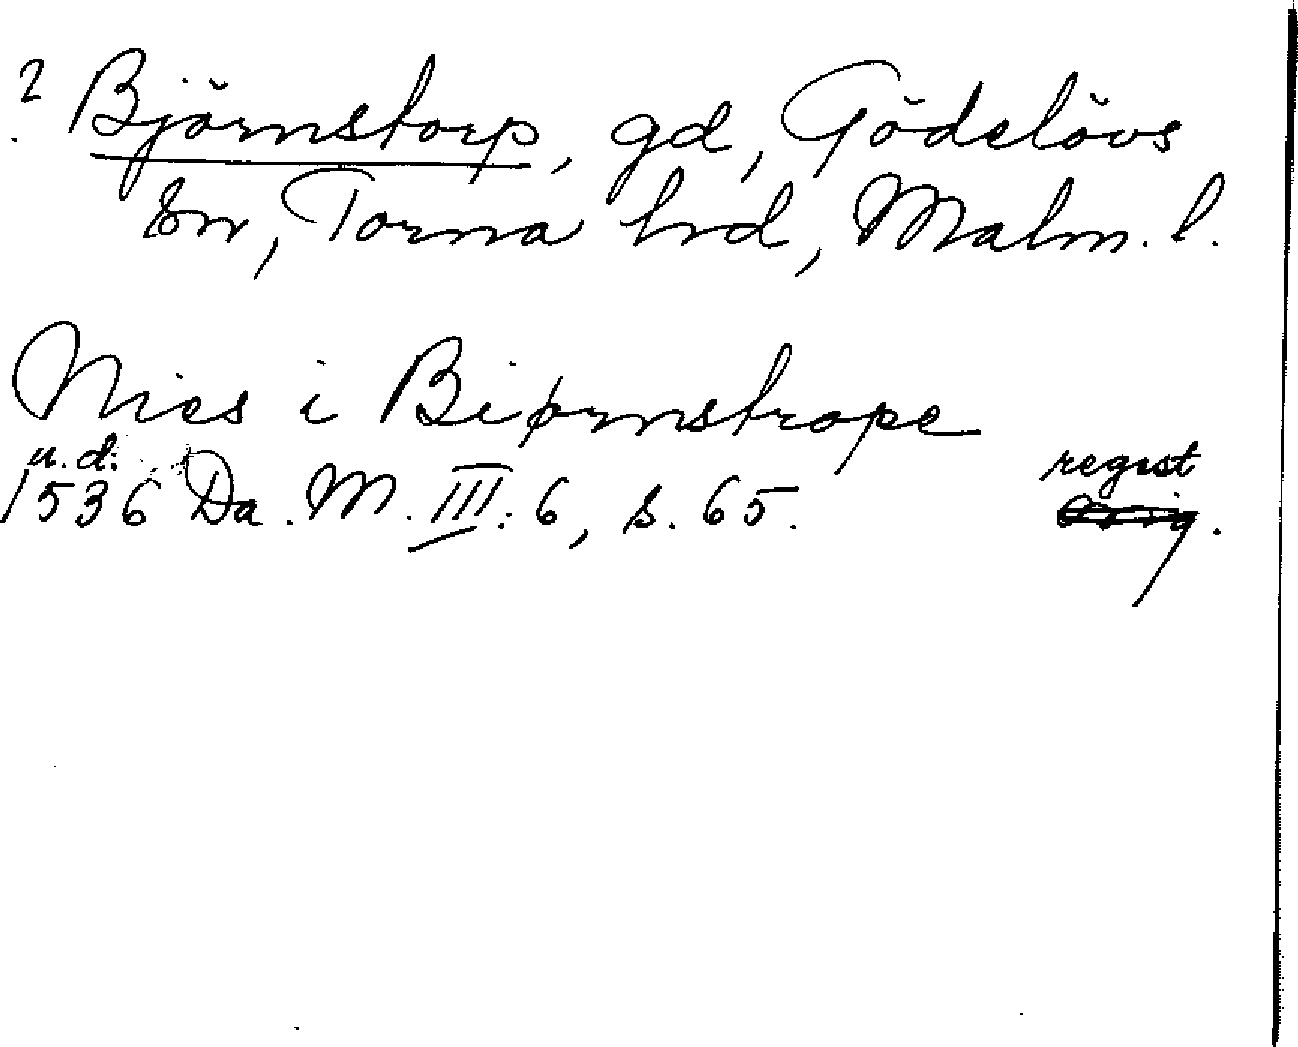 ? Björnstorp, gd, Gödelövs
sn, Torna hrd, Malm. l.
Nies i Biørnstrope
u.d.
1536 Da. M. III: 6, s. 65. regist
Orig.